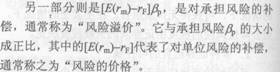 另一部分则是[E(rm)−rF]βp，是对承担风险的补
偿，通常称为“风险溢价”。它与承担风险βp的大小
成正比，其中的[E(rm)−rF]代表了对单位风险的补偿，
通常称之为“风险的价格”。